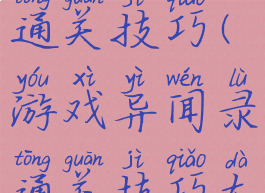 tōng guān jì qiǎo
通关技巧(
yóu xì yì wén lù
游戏异闻录
tōng guān jì qiǎo dà
通关技巧大